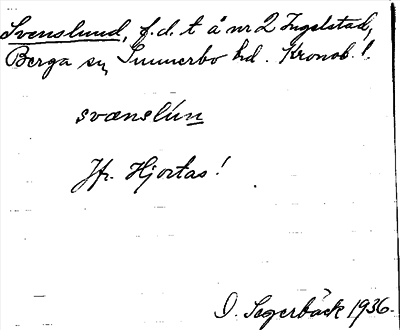 Svenslund, f.d. t å nr 2 Ingelstad,
Berga sn, Sunnerbo hd. Kronob. l.
svænslún
Jfr. Hjortas!
O. Segerbäck 1936.